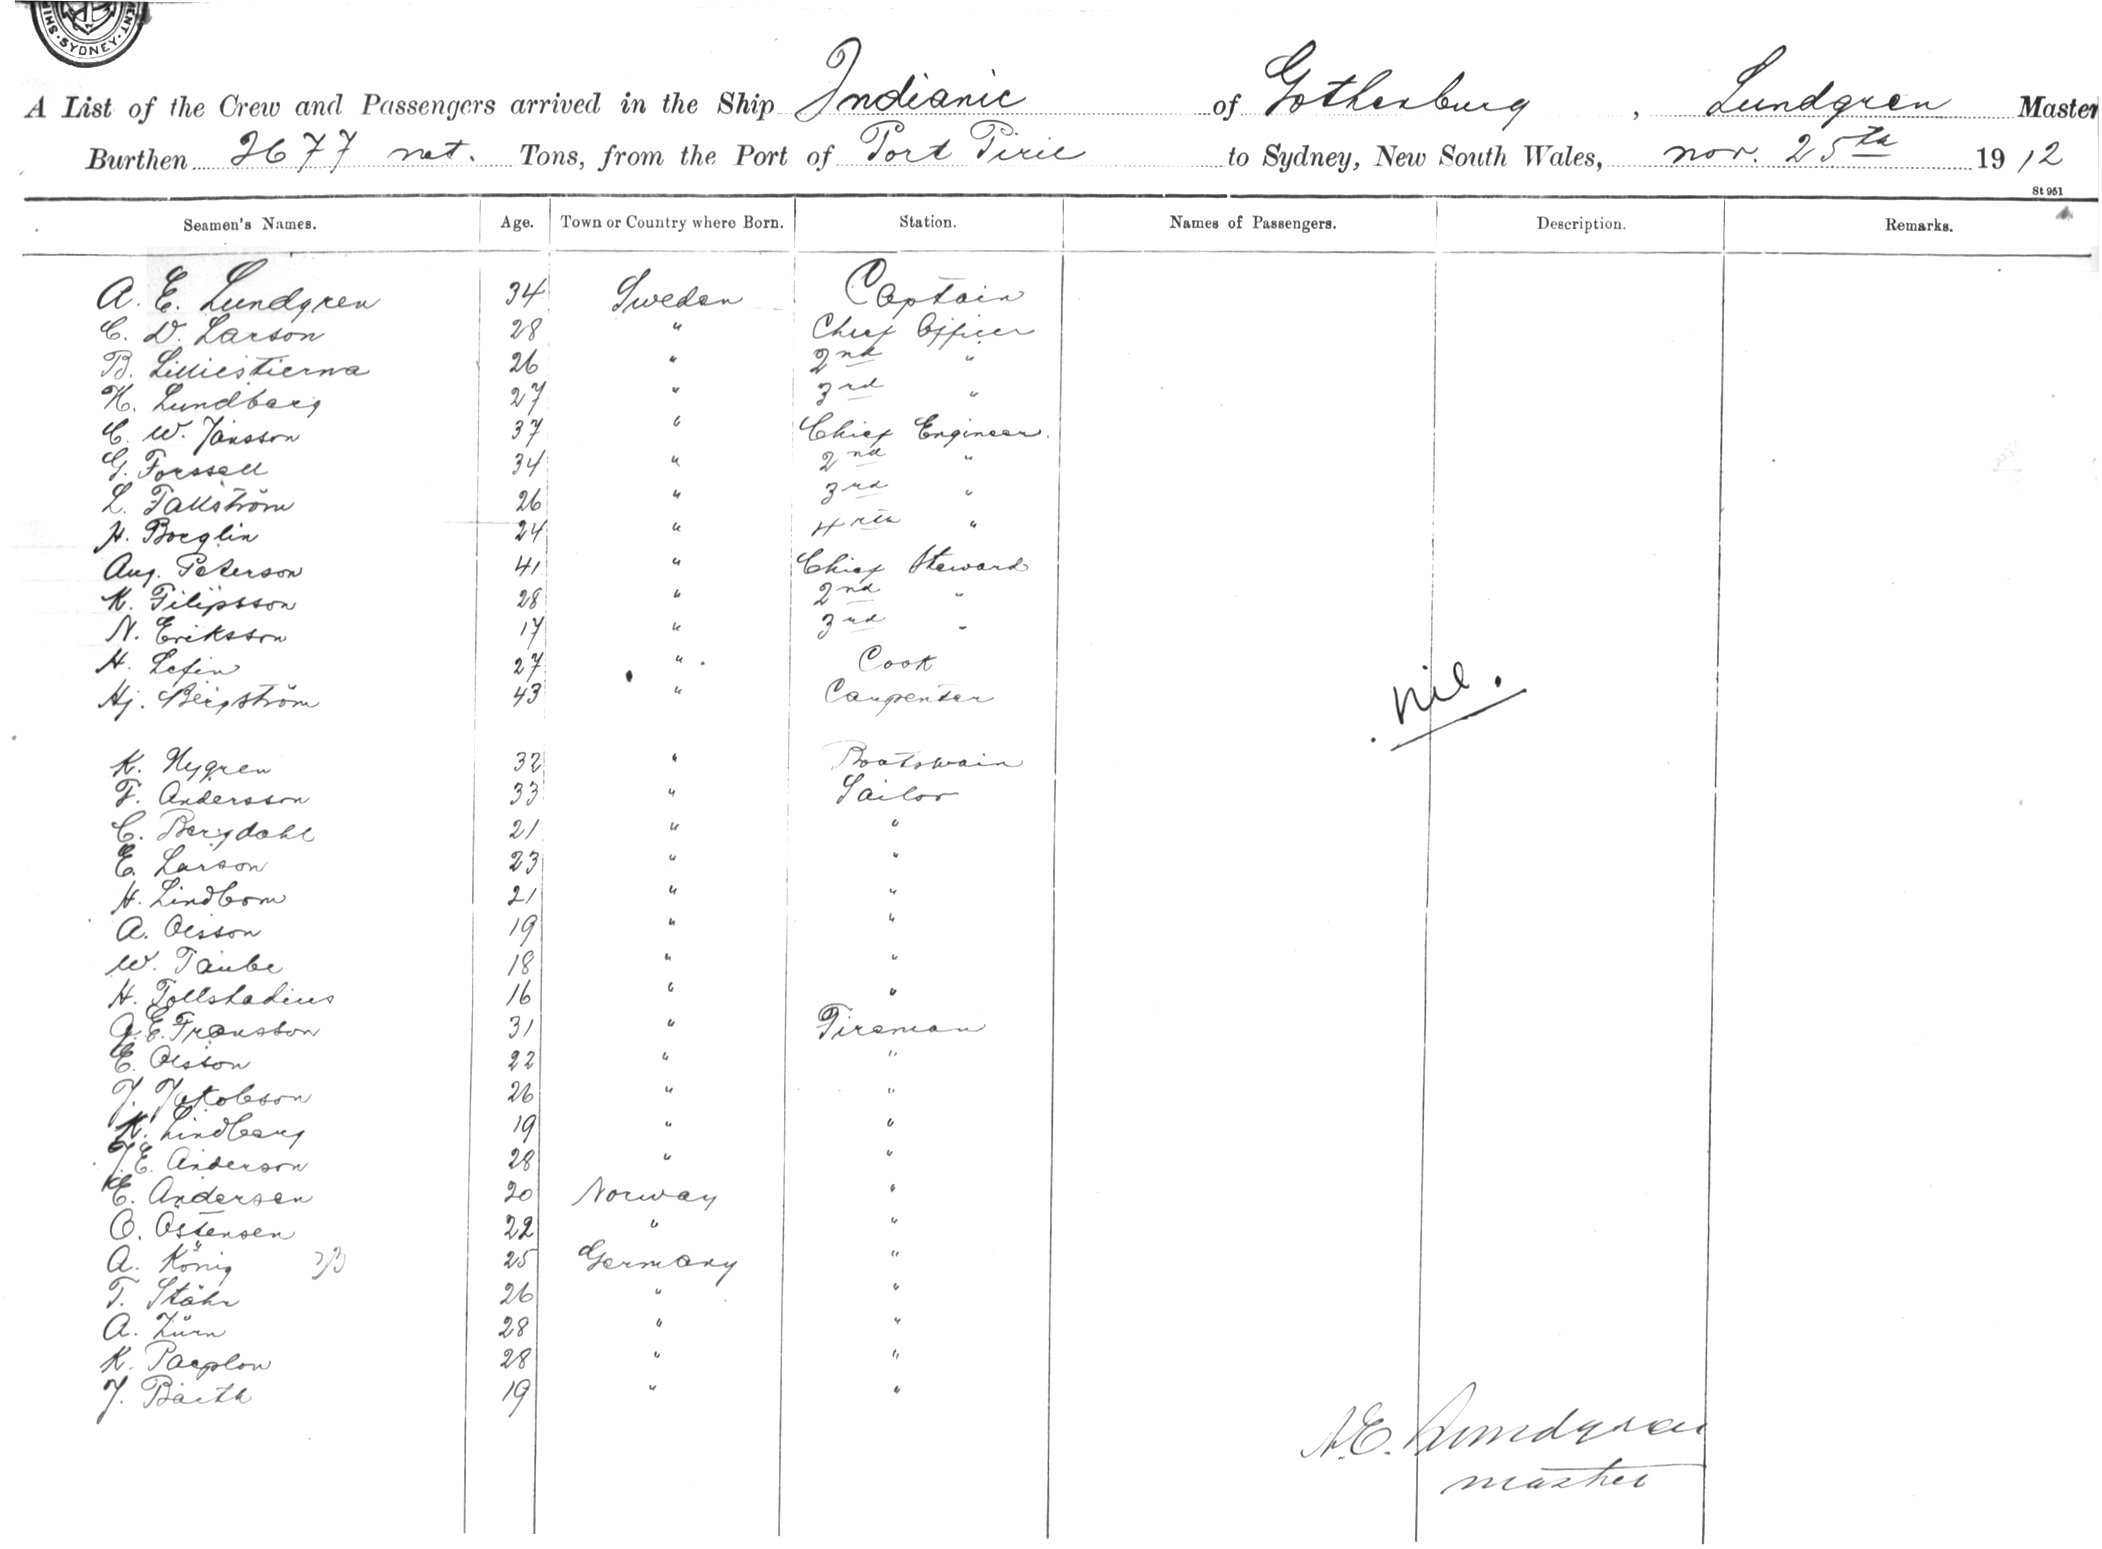 SYDNEY
A List of the Crew and Passengers arrived in the Ship Indianic of Gothenburg, Lundgren Master
Burthen 2677 net. Tons, from the Port of Port Pirie to Sydney, New South Wales, Nov. 25th 1912
St 951
Seamen's Names. Age. Town or Country where Born. Station. Names of Passengers. Description. Remarks.
A. E. Lundgren 34 Sweden Captain
C. D. Larson 28 " Chief Officer
B. Lilliestierna 26 " 2nd "
H. Lundberg 27 " 3rd "
C. W. Jansson 37 " Chief Engineer.
G. Forssell 34 " 2nd "
L. Fallström 26 " 3rd "
H. Boeglin 24 " 4rth "
Aug. Peterson 41 " Chief Steward
K. Filipsson 28 " 2nd "
N. Eriksson 17 " 3rd "
H. 27 " Cook
Hj. Bergström 43 " Carpenter
nil.
K. Nygren 32 " Boatswain
F. Andersson 33 " Sailor
C. Bergdahl 21 " "
E. Larson 23 " "
H. Lindbom 21 " "
A. Olsson 19 " "
W. Taube 18 " "
H. 16 " "
A. E. Fransson 31 " Fireman
E. Olsson 22 " "
J. Jakobson 26 " "
K. Lindberg 19 " "
J. E. Anderson 28 " "
E. Andersen 20 Norway "
O. Ostensen 22 " "
A. König 25 Germany "
T. Stähr 26 " "
A. Zürn 28 " "
K. Paeplow 28 " "
J. Barth 19 " "
A. E. Lundgren
master